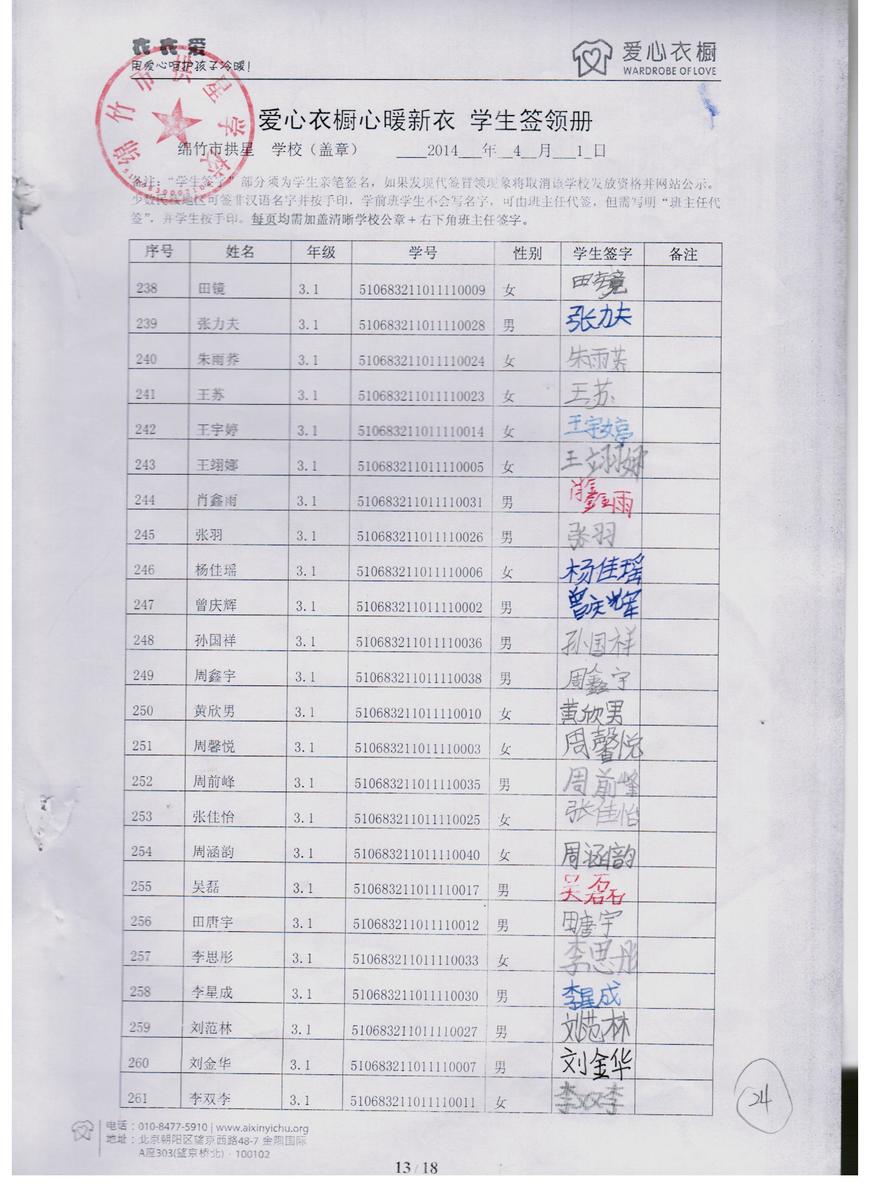 衣衣爱
用爱心呵护孩子冷暖!
爱心衣橱
WARDROBE OF LOVE
绵竹市拱星学校
爱心衣橱心暖新衣 学生签领册
绵竹市拱星 学校（盖章） 2014 年 4 月 1 日
备注："学生签字"部分须为学生亲笔签名，如果发现代签冒领现象将取消该学校发放资格并网站公示。
少数民族地区可签非汉语名字并按手印，学前班学生不会写名字，可由班主任代签，但需写明"班主任代
签"，并学生按手印。每页均需加盖清晰学校公章+右下角班主任签字。
序号 姓名 年级 学号 性别 学生签字 备注
238 田镜 3.1 510683211011110009 女 田镜
239 张力夫 3.1 510683211011110028 男 张力夫
240 朱雨荞 3.1 510683211011110024 女 朱雨荞
241 王苏 3.1 510683211011110023 女 王苏
242 王宇婷 3.1 510683211011110014 女 王宇婷
243 王翊娜 3.1 510683211011110005 女 王翊娜
244 肖鑫雨 3.1 510683211011110031 男 肖鑫雨
245 张羽 3.1 510683211011110026 男 张羽
246 杨佳瑶 3.1 510683211011110006 女 杨佳瑶
247 曾庆辉 3.1 510683211011110002 男 曾庆辉
248 孙国祥 3.1 510683211011110036 男 孙国祥
249 周鑫宇 3.1 510683211011110038 男 周鑫宇
250 黄欣男 3.1 510683211011110010 女 黄欣男
251 周馨悦 3.1 510683211011110003 女 周馨悦
252 周前峰 3.1 510683211011110035 男 周前峰
253 张佳怡 3.1 510683211011110025 女 张佳怡
254 周涵韵 3.1 510683211011110040 女 周涵韵
255 吴磊 3.1 510683211011110017 男 吴磊
256 田唐宇 3.1 510683211011110012 男 田唐宇
257 李思彤 3.1 510683211011110033 女 李思彤
258 李星成 3.1 510683211011110030 男 李星成
259 刘范林 3.1 510683211011110027 男 刘范林
260 刘金华 3.1 510683211011110007 男 刘金华
261 李双李 3.1 510683211011110011 女 李双李
24
电话：010-8477-5910 | www.aixinyichu.org
地址：北京朝阳区望京西路48-7 金隅国际
A座303(望京桥北)·100102
13 / 18